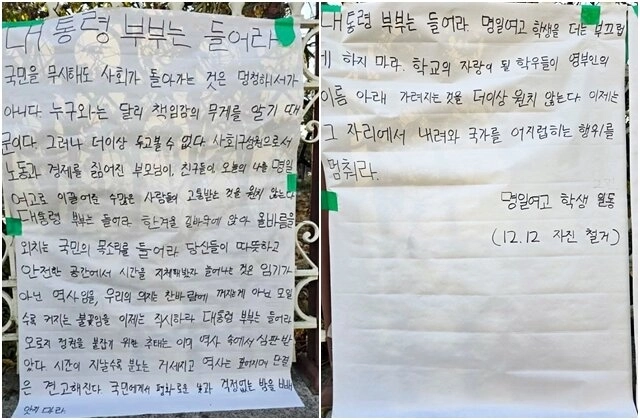 대통령 부부는 들어라
국민을 무시해도 사회가 돌아가는 것은 멍청해서가
아니다. 누구와는 달리 책임감의 무게를 알기 때
문이다. 그러나 더이상 두고볼 수 없다. 사회구성원으로서
노동과 경제를 짊어진 부모님이, 친구들이, 오늘의 나를 명일
여고로 이끌어준 수많은 사람들이 고통받는 것을 원치 않는다
대통령 부부는 들어라. 한겨울 길바닥에 앉아 올바름을
외치는 국민의 목소리를 들어라 당신들이 따뜻하고
안전한 공간에서 시간을 지체할수록 늘어나는 것은 임기가
아닌 역사임을, 우리의 의지는 찬바람에 꺼지는게 아닌 모일
수록 커지는 불꽃임을 이제는 직시하라 대통령 부부는 들어라
오로지 정권을 붙잡기 위한 추태는 이미 역사 속에서 심판 받
았다. 시간이 지날수록 분노는 거세지고 역사는 깊어지며 단결
은 견고해진다. 국민에게서 평화로운 낮과 걱정없는 밤을 빼앗
지 마라.
대통령 부부는 들어라. 명일여고 학생을 더는 부끄럽
게 하지 마라. 학교의 자랑이 될 학우들이 영부인의
이름 아래 가려지는 것을 더이상 원치 않는다. 이제는
그 자리에서 내려와 국가를 어지럽히는 행위를
멈춰라.
명일여고 학생 일동
(12.12 자진 철거)